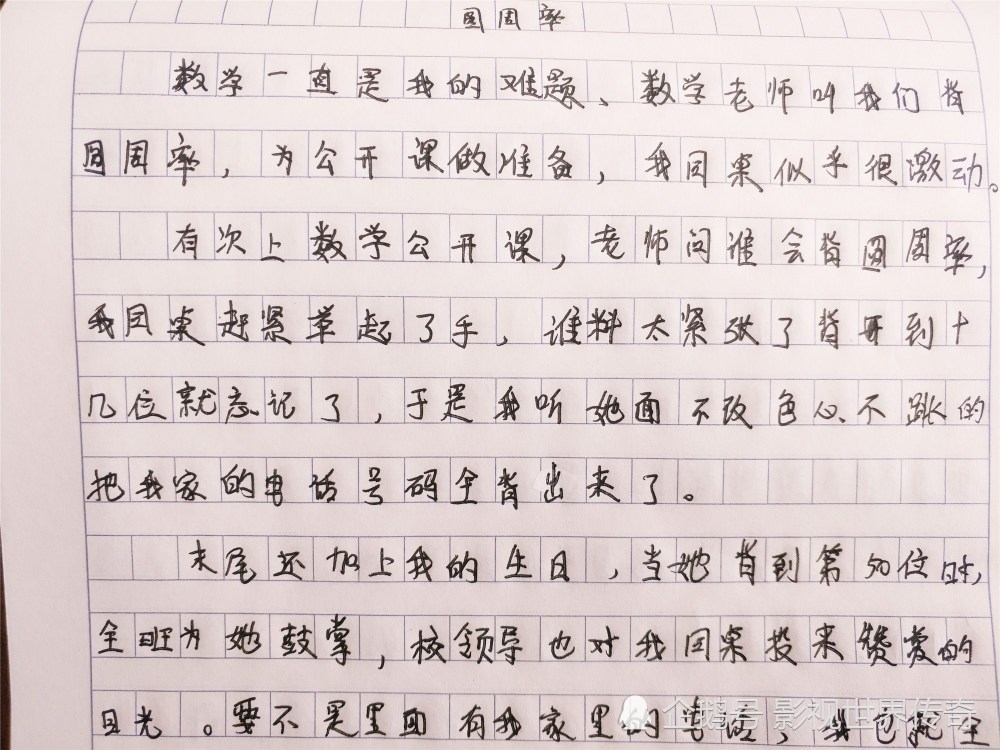 圆周率
数学一直是我的难题、数学老师叫我们背
圆周率，为公开课做准备，我同桌似乎很激动。
有次上数学公开课，老师问谁会背圆周率，
我同桌赶紧举起了手，谁料太紧张了背开到十
几位就忘记了，于是我听她面不改色心不跳的
把我家的电话号码全背出来了。
末尾还加上我的生日，当她背到第50位时，
全班为她鼓掌，校领导也对我同桌投来赞赏的
目光。要不是里面有我家里的电话，我也就全
企鹅号 影视世界传奇